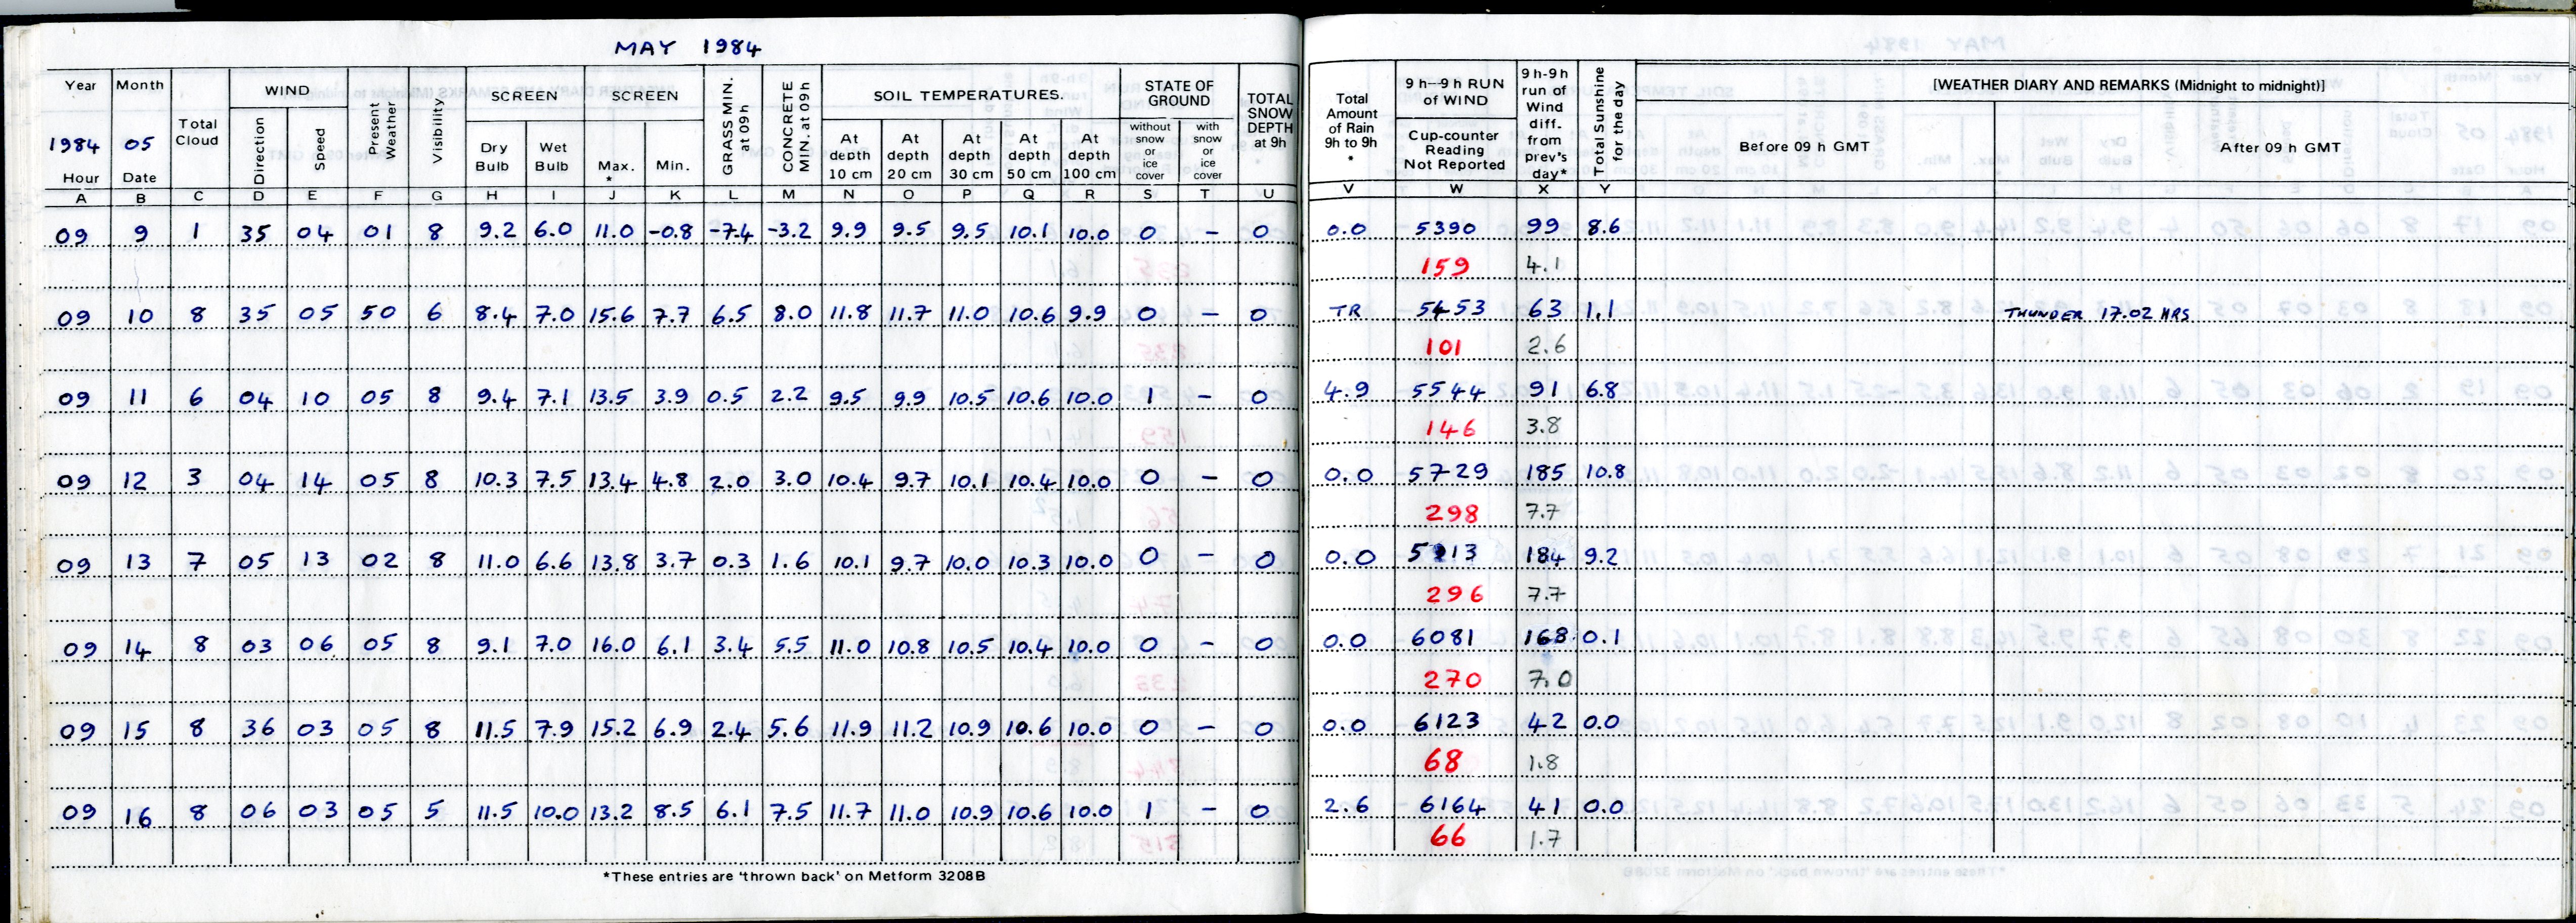 MAY 1984
Year Month Total Cloud WIND Present Weather Visibility SCREEN SCREEN GRASS MIN. at 09h CONCRETE MIN. at 09h SOIL TEMPERATURES. STATE OF GROUND TOTAL SNOW DEPTH at 9h Total Amount of Rain 9h to 9h * 9 h–9 h RUN of WIND 9 h-9h run of Wind diff. from prev's day* Total Sunshine for the day [WEATHER DIARY AND REMARKS (Midnight to midnight)]
1984 05 Direction Speed Dry Bulb Wet Bulb Max. * Min. At depth 10 cm At depth 20 cm At depth 30 cm At depth 50 cm At depth 100 cm without snow or ice cover with snow or ice cover Cup-counter Reading Not Reported Before 09 h GMT After 09 h GMT
Hour Date
A B C D E F G H I J K L M N O P Q R S T U V W X Y
09 9 1 35 04 01 8 9.2 6.0 11.0 -0.8 -7.4 -3.2 9.9 9.5 9.5 10.1 10.0 0 – 0 0.0 5390 99 8.6
159 4.1
09 10 8 35 05 50 6 8.4 7.0 15.6 7.7 6.5 8.0 11.8 11.7 11.0 10.6 9.9 0 – 0 TR 5453 63 1.1 THUNDER 17.02 HRS
101 2.6
09 11 6 04 10 05 8 9.4 7.1 13.5 3.9 0.5 2.2 9.5 9.9 10.5 10.6 10.0 1 – 0 4.9 5544 91 6.8
146 3.8
09 12 3 04 14 05 8 10.3 7.5 13.4 4.8 2.0 3.0 10.4 9.7 10.1 10.4 10.0 0 – 0 0.0 5729 185 10.8
298 7.7
09 13 7 05 13 02 8 11.0 6.6 13.8 3.7 0.3 1.6 10.1 9.7 10.0 10.3 10.0 0 – 0 0.0 184 9.2
296 7.7
09 14 8 03 06 05 8 9.1 7.0 16.0 6.1 3.4 5.5 11.0 10.8 10.5 10.4 10.0 0 – 0 0.0 6081 168 0.1
270 7.0
09 15 8 36 03 05 8 11.5 7.9 15.2 6.9 2.4 5.6 11.9 11.2 10.9 10.6 10.0 0 – 0 0.0 6123 42 0.0
68 1.8
09 16 8 06 03 05 5 11.5 10.0 13.2 8.5 6.1 7.5 11.7 11.0 10.9 10.6 10.0 1 – 0 2.6 6164 41 0.0
66 1.7
*These entries are 'thrown back' on Metform 3208B